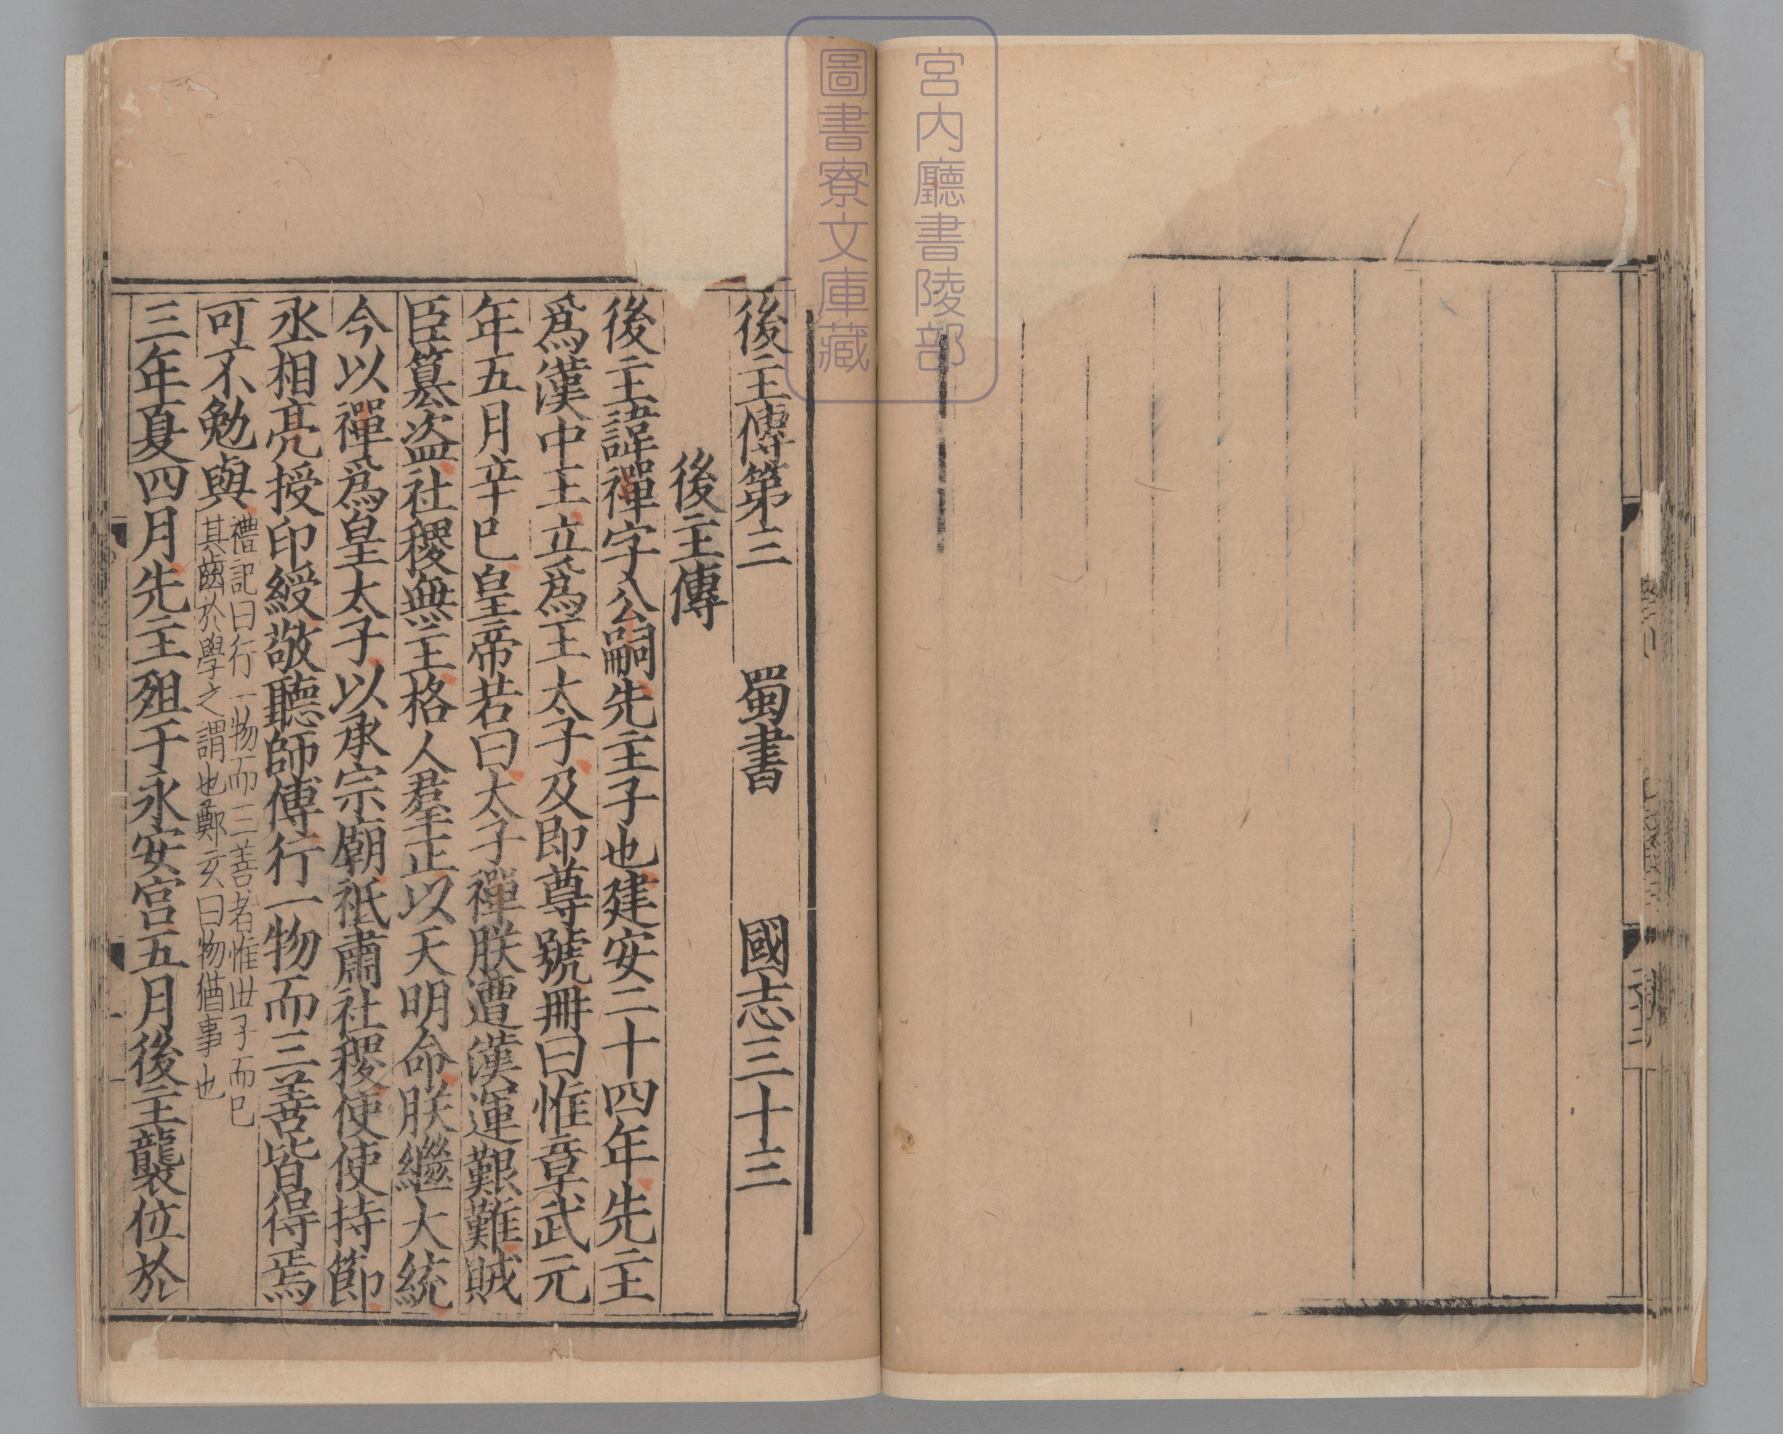 宮内廳書陵部
圖書寮文庫藏
後主傳第三 蜀書 國志三十三
後主傳
後主諱禪字公嗣先主子也建安二十四年先主
爲漢中王立爲王太子及即尊號冊曰惟章武元
年五月辛巳皇帝若曰太子禪朕遭漢運艱難賊
臣篡盗社稷無主格人羣正以天明命朕繼大統
今以禪爲皇太子以承宗廟祗肅社稷使使持節
丞相亮授印綬敬聽師傅行一物而三善皆得焉
可不勉與
禮記曰行一物而三善者惟世子而已
其齒於學之謂也鄭玄曰物猶事也
三年夏四月先主殂于永安宮五月後主襲位於